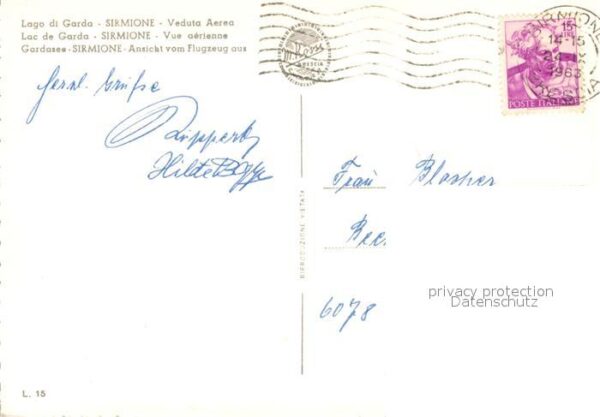 Lago di Garda - SIRMIONE - Veduta Aerea
Lac de Garda - SIRMIONE - Vue aérienne
Gardasee - SIRMIONE - Ansicht vom Flugzeug aus
BRESCIA
SIRMIONE
14-15
1963
15
POSTE ITALIANE
Herzl. Grüße
Hilde
Frau Blosher
Bec.
6078
RIPRODUZIONE VIETATA
privacy protection
Datenschutz
L. 15